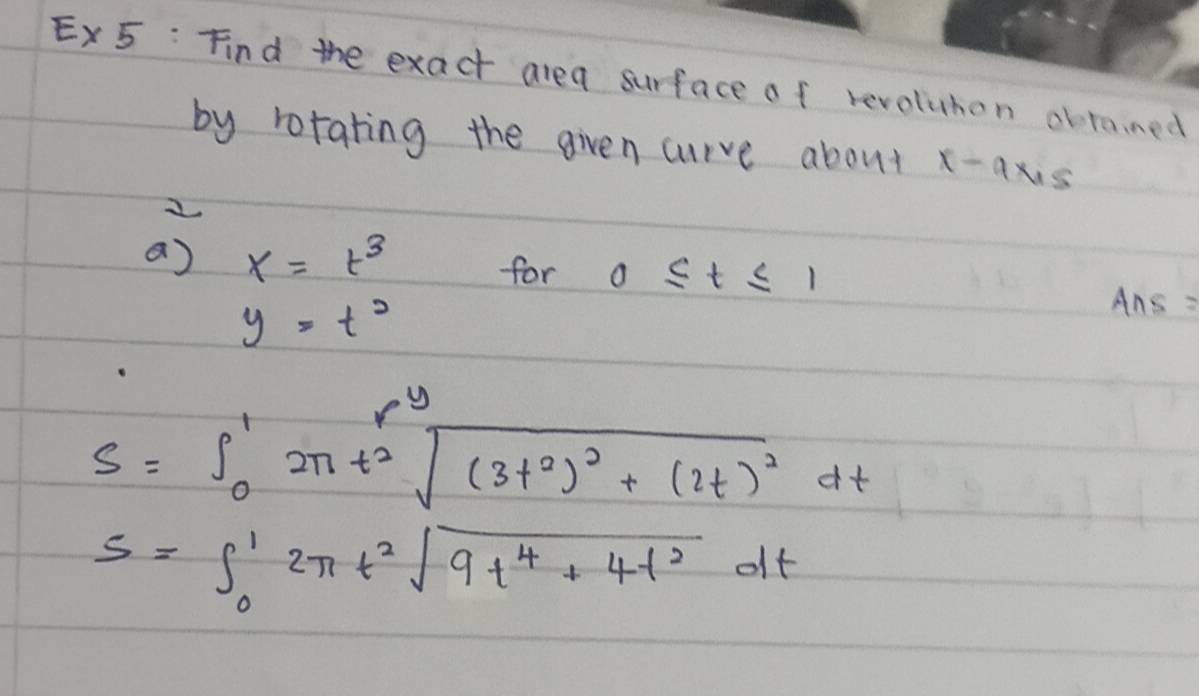 Ex 5 : Find the exact area surface of revolution obtained
by rotating the given curve about x-axis
2
a) x = t³ for 0 ≤ t ≤ 1
Ans =
y = t²
y
S = ∫₀¹ 2π t² √((3t²)² + (2t)²) dt
S = ∫₀¹ 2π t² √(9t⁴ + 4t²) dt